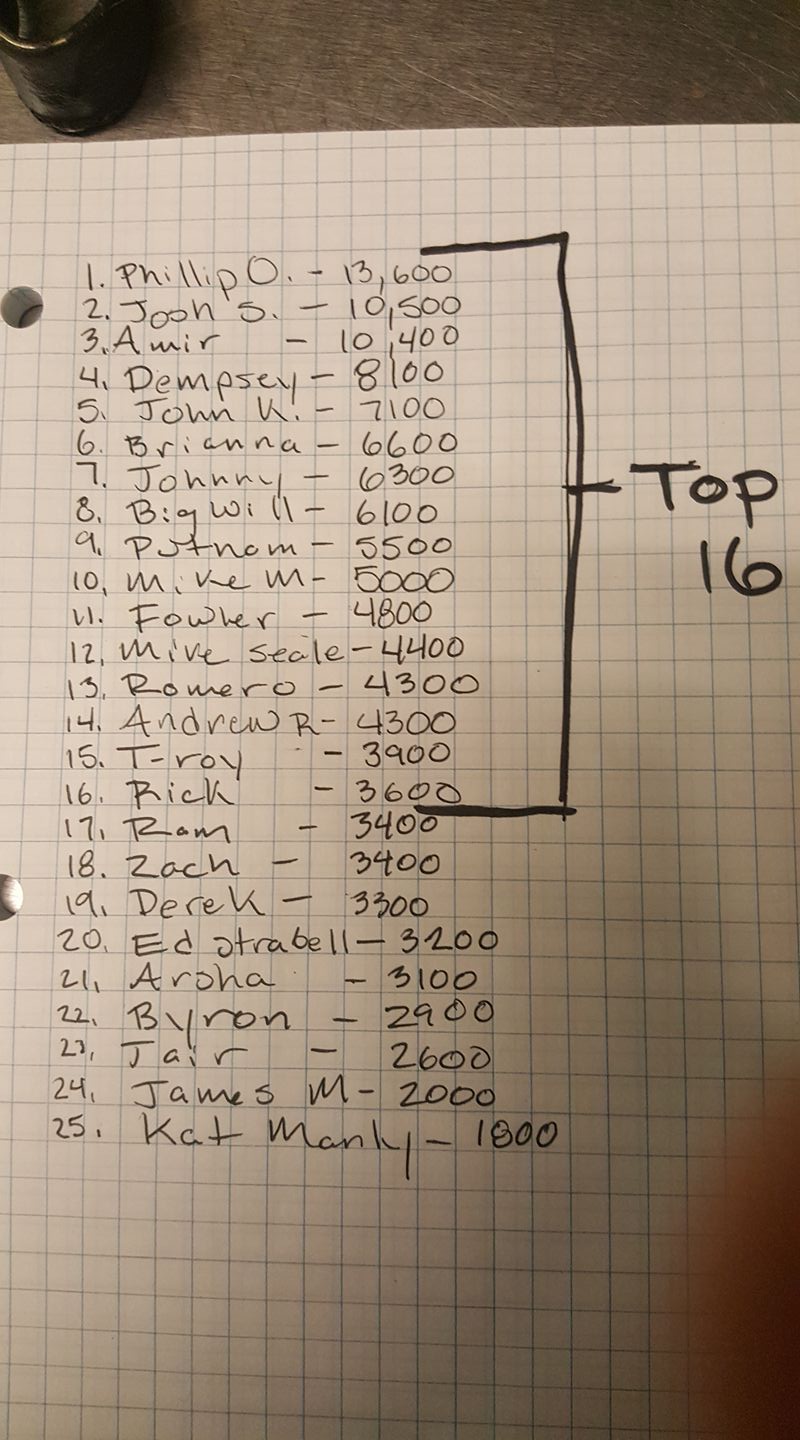 1. Phillip O. - 13,600
2. Josh S. - 10,500
3. Amir - 10,400
4. Dempsey - 8100
5. John K. - 7100
6. Brianna - 6600
7. Johnny - 6300
8. Big Will - 6100
9. Putnam - 5500
10. Mike M - 5000
11. Fowler - 4800
12. Mike Seale - 4400
13. Romero - 4300
14. Andrew R - 4300
15. T-roy - 3900
16. Rick - 3600
Top
16
17. Ram - 3400
18. Zach - 3400
19. Derek - 3300
20. Ed - 3200
21. - 3100
22. Byron - 2900
23. Jair - 2600
24. James M - 2000
25. Kat Manly - 1800